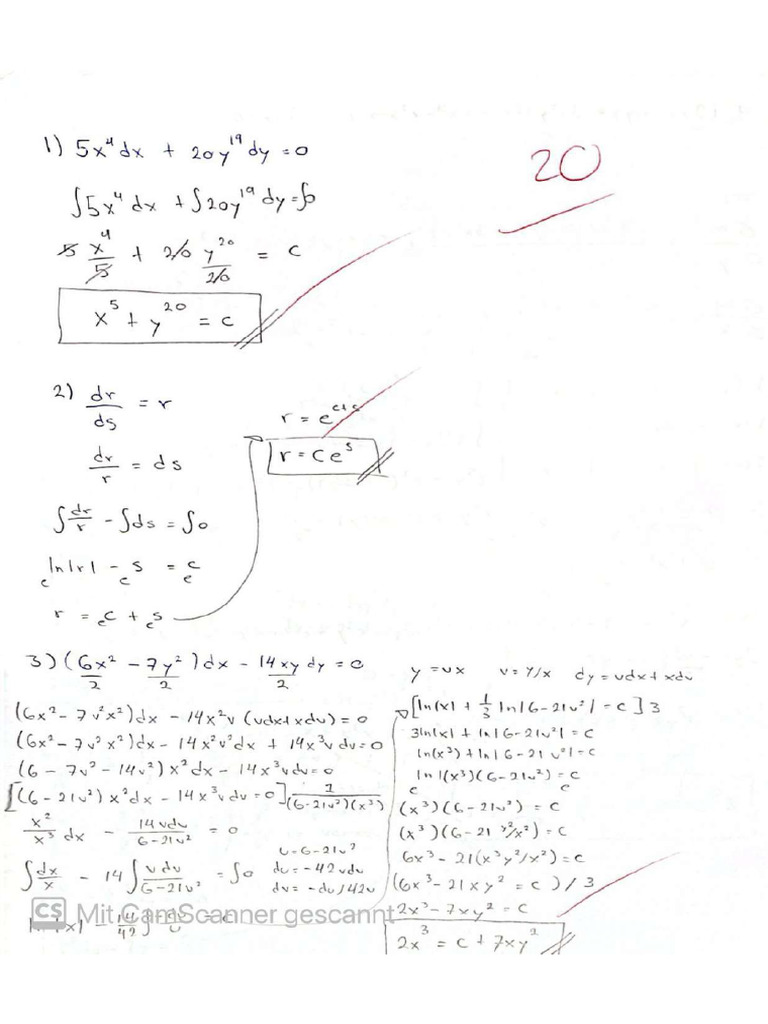 20
1) 5x⁴dx + 20y¹⁹dy = 0
∫5x⁴dx + ∫20y¹⁹dy = ∫0
5 x⁴/5 + 20 y²⁰/20 = c
x⁵ + y²⁰ = c
2) dr/ds = r
dr/r = ds
∫dr/r - ∫ds = ∫0
ln|r| - s = c
e e e
r = e^c + e^s
r = e^(c+s)
r = Ce^s
3) (6x² - 7y²)dx - 14xy dy = 0
2 2 2
(6x² - 7v²x²)dx - 14x²v (vdx+xdv) = 0
(6x² - 7v²x²)dx - 14x²v²dx + 14x³vdv = 0
(6 - 7v² - 14v²)x²dx - 14x³vdv = 0
[(6-21v²)x²dx - 14x³vdv = 0] 1/((6-21v²)(x³))
x²/x³ dx - 14vdv/(6-21v²) = 0
∫dx/x - 14∫vdv/(6-21v²) = ∫0
u = 6-21v²
du = -42vdv
dv = -du/42v
y = vx v = y/x dy = vdx+xdv
[ln|x| + 1/3 ln|6-21v²| = c] 3
3ln|x| + ln|6-21v²| = c
ln(x³) + ln|6-21v²| = c
ln|(x³)(6-21v²) = c
e e
(x³)(6-21v²) = c
(x³)(6-21 y²/x²) = c
6x³ - 21(x³y²/x²) = c
(6x³ - 21xy² = c) / 3
2x³ - 7xy² = c
2x³ = c + 7xy²
CS Mit CamScanner gescannt